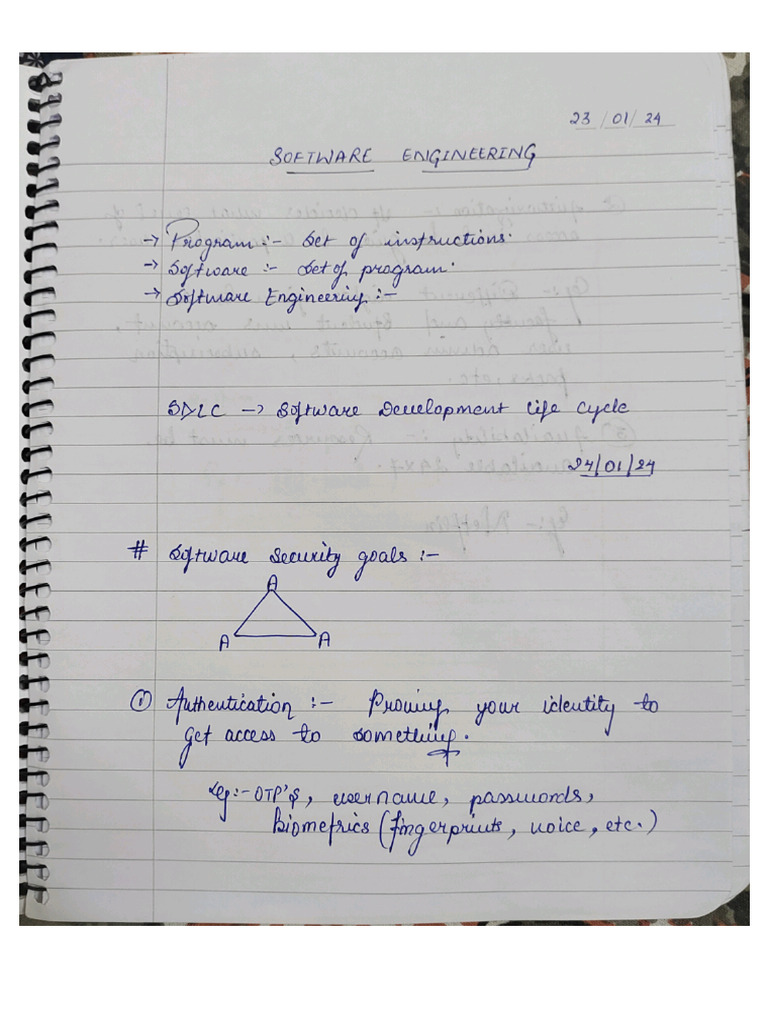 23/01/24
SOFTWARE ENGINEERING
→ Program :- Set of instructions.
→ Software :- Set of program.
→ Software Engineering :-
SDLC → Software Development Life Cycle
24/01/24
# Software Security goals :-
A
A A
① Authentication :- Proving your identity to
get access to something.
Eg:- OTP's, username, passwords,
Biometrics (fingerprints, voice, etc.)